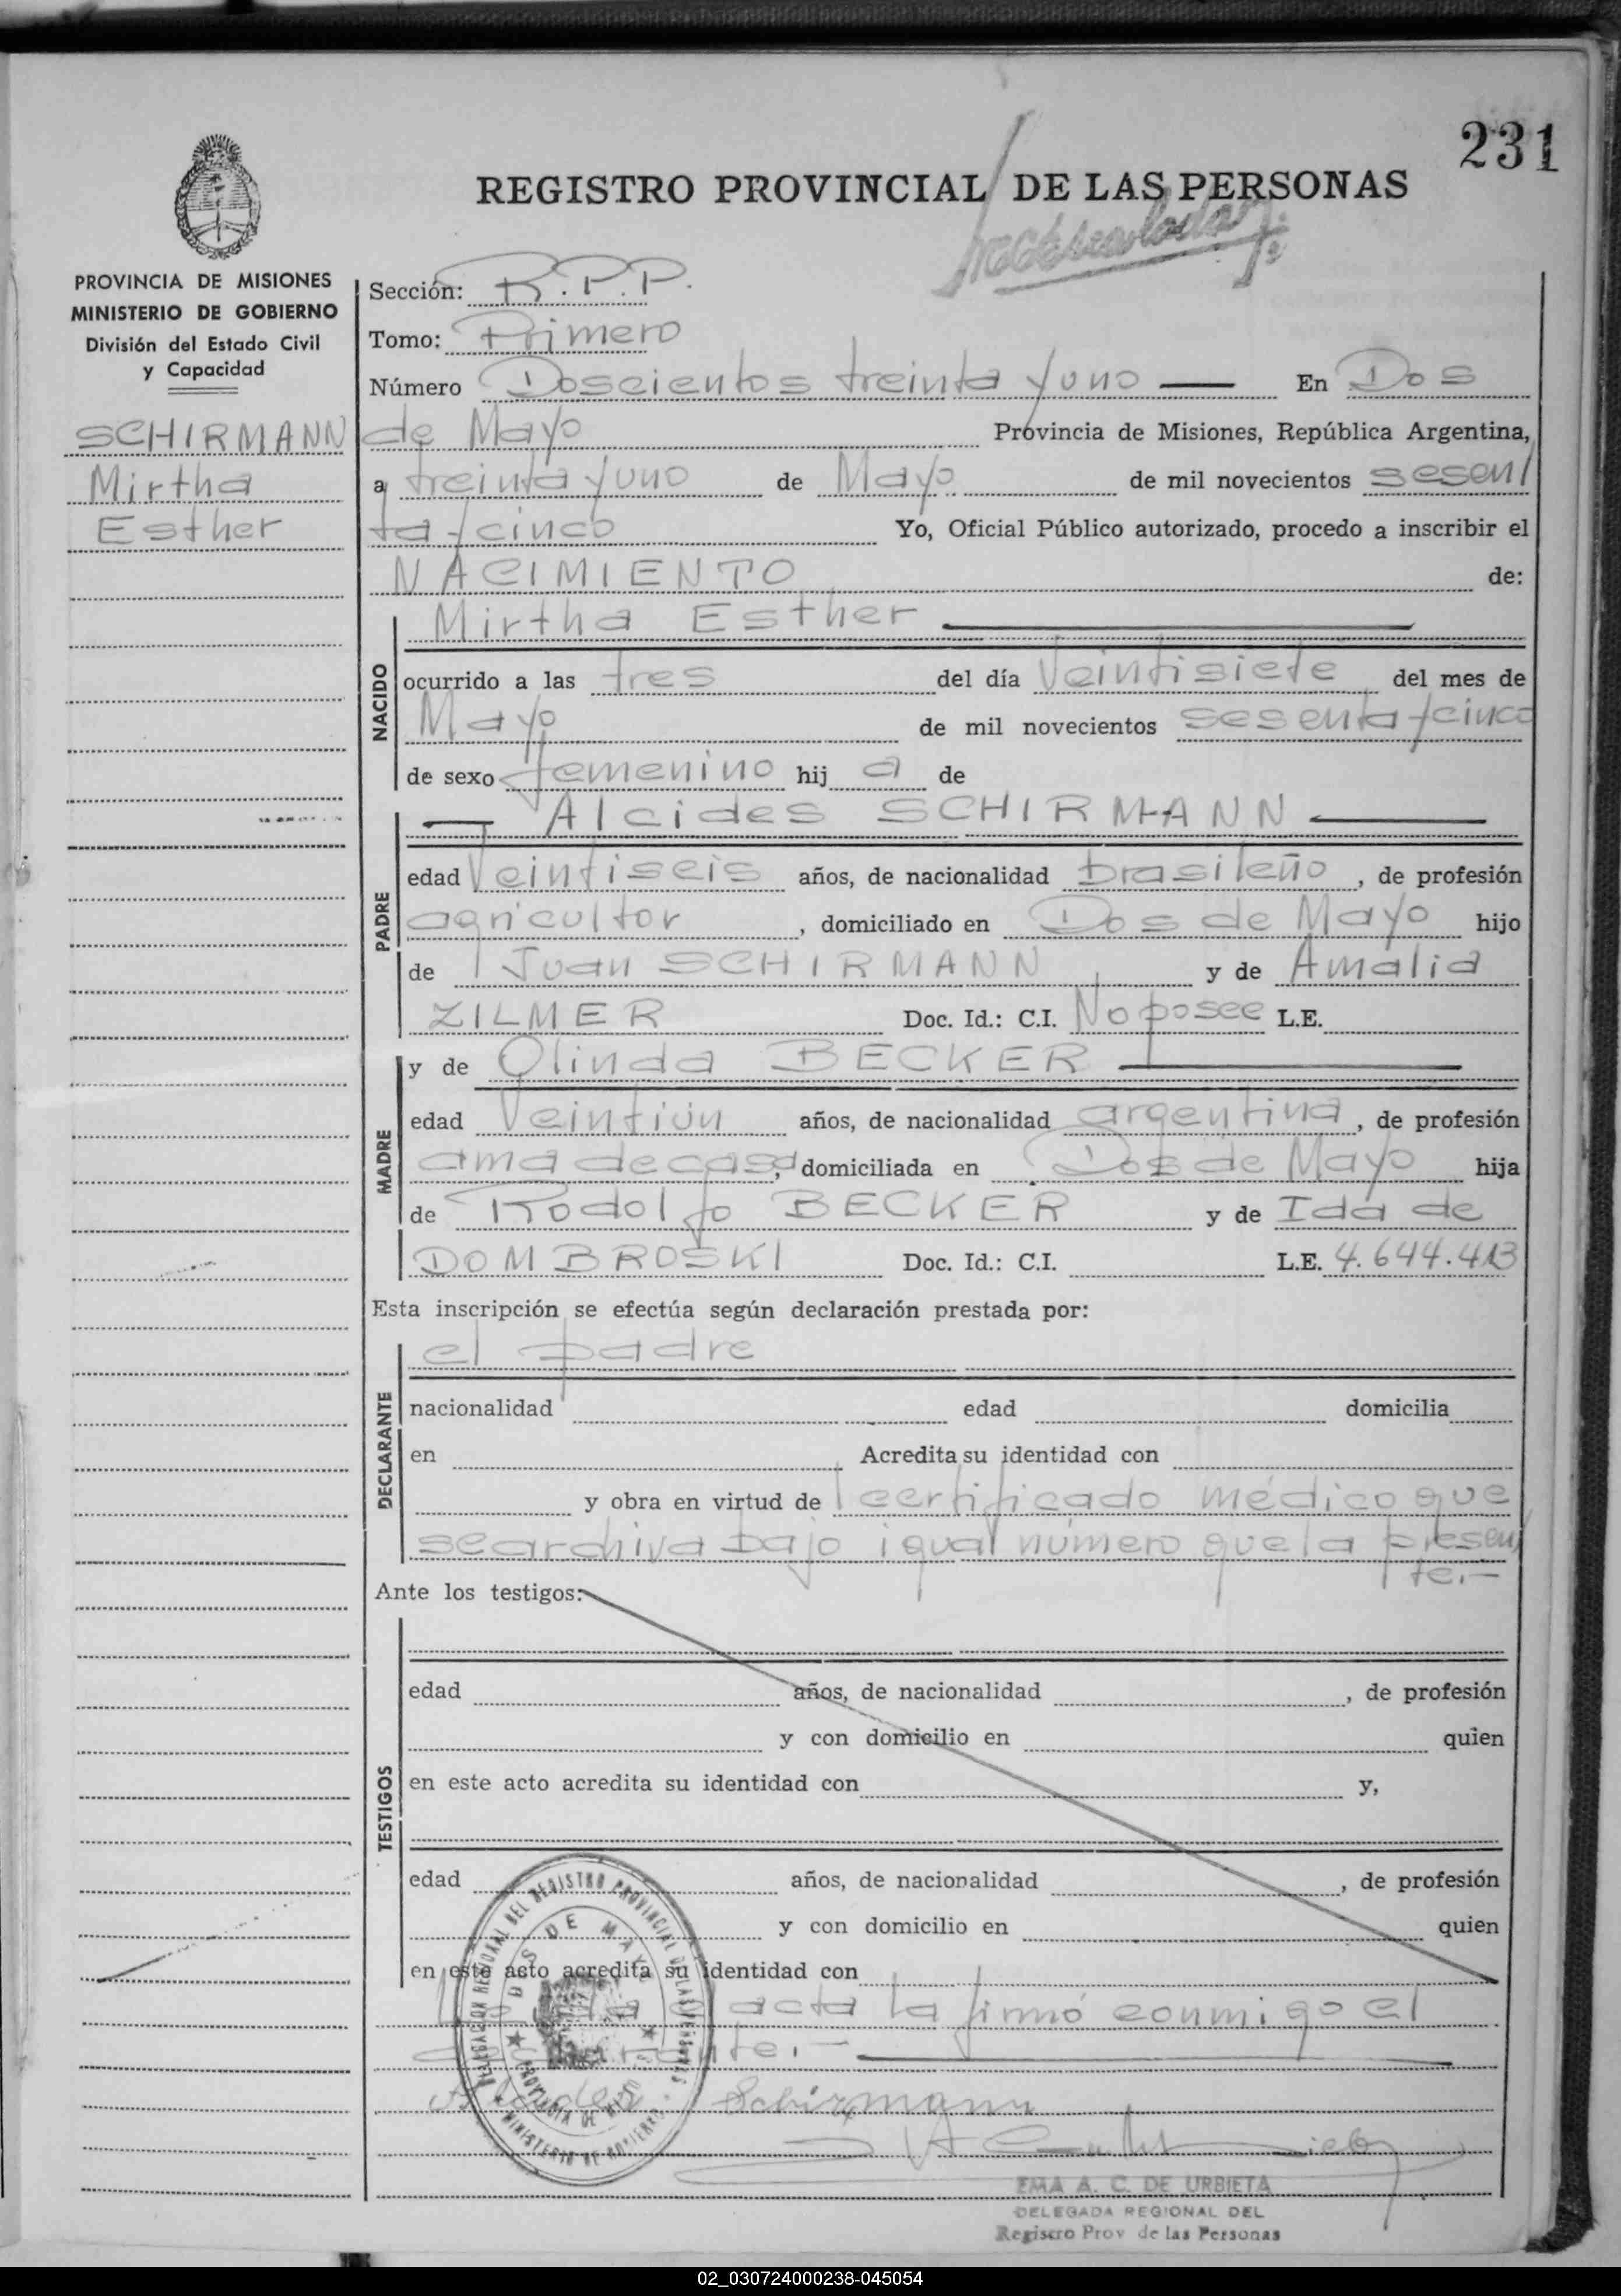 231
REGISTRO PROVINCIAL DE LAS PERSONAS
PROVINCIA DE MISIONES
MINISTERIO DE GOBIERNO
División del Estado Civil
y Capacidad
SCHIRMANN
Mirtha
Esther
Sección: R.P.P.
Tomo: Primero
Número Doscientos treinta y uno — En Dos
de Mayo Provincia de Misiones, República Argentina,
a treinta y uno de Mayo de mil novecientos sesen/
ta y cinco Yo, Oficial Público autorizado, procedo a inscribir el
NACIMIENTO de:
NACIDO
Mirtha Esther —
ocurrido a las tres del día Veintisiete del mes de
Mayo de mil novecientos sesenta y cinco
de sexo femenino hij a de
PADRE
— Alcides SCHIRMANN —
edad Veintiseis años, de nacionalidad brasileño, de profesión
agricultor, domiciliado en Dos de Mayo hijo
de Juan SCHIRMANN y de Amalia
ZILMER Doc. Id.: C.I. No posee L.E.
MADRE
y de Olinda BECKER —
edad Veintiún años, de nacionalidad argentina, de profesión
ama de casa, domiciliada en Dos de Mayo hija
de Rodolfo BECKER y de Ida de
DOMBROSKI Doc. Id.: C.I. L.E. 4.644.413
Esta inscripción se efectúa según declaración prestada por:
DECLARANTE
el padre
nacionalidad edad domicilia
en Acredita su identidad con
y obra en virtud de certificado médico que
se archiva bajo igual número que la presen/
te.—
Ante los testigos:
TESTIGOS
edad años, de nacionalidad , de profesión
y con domicilio en quien
en este acto acredita su identidad con y,
edad años, de nacionalidad , de profesión
y con domicilio en quien
en este acto acredita su identidad con
acta la firmó conmigo el
declarante.—
Alcides Schirmann
DELEGACION REGIONAL DEL REGISTRO PROVINCIAL DE LAS PERSONAS
DOS DE MAYO
PROVINCIA DE MISIONES
MINISTERIO DE GOBIERNO
EMA A. C. DE URBIETA
DELEGADA REGIONAL DEL
Registro Prov de las Personas
02_030724000238-045054